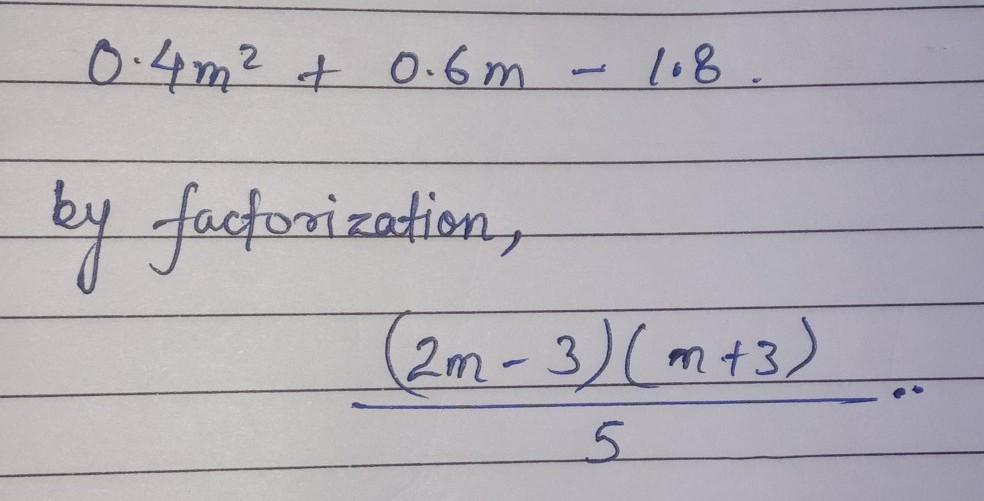 0.4m² + 0.6m - 1.8.
by factorization,
(2m - 3)(m + 3)
5